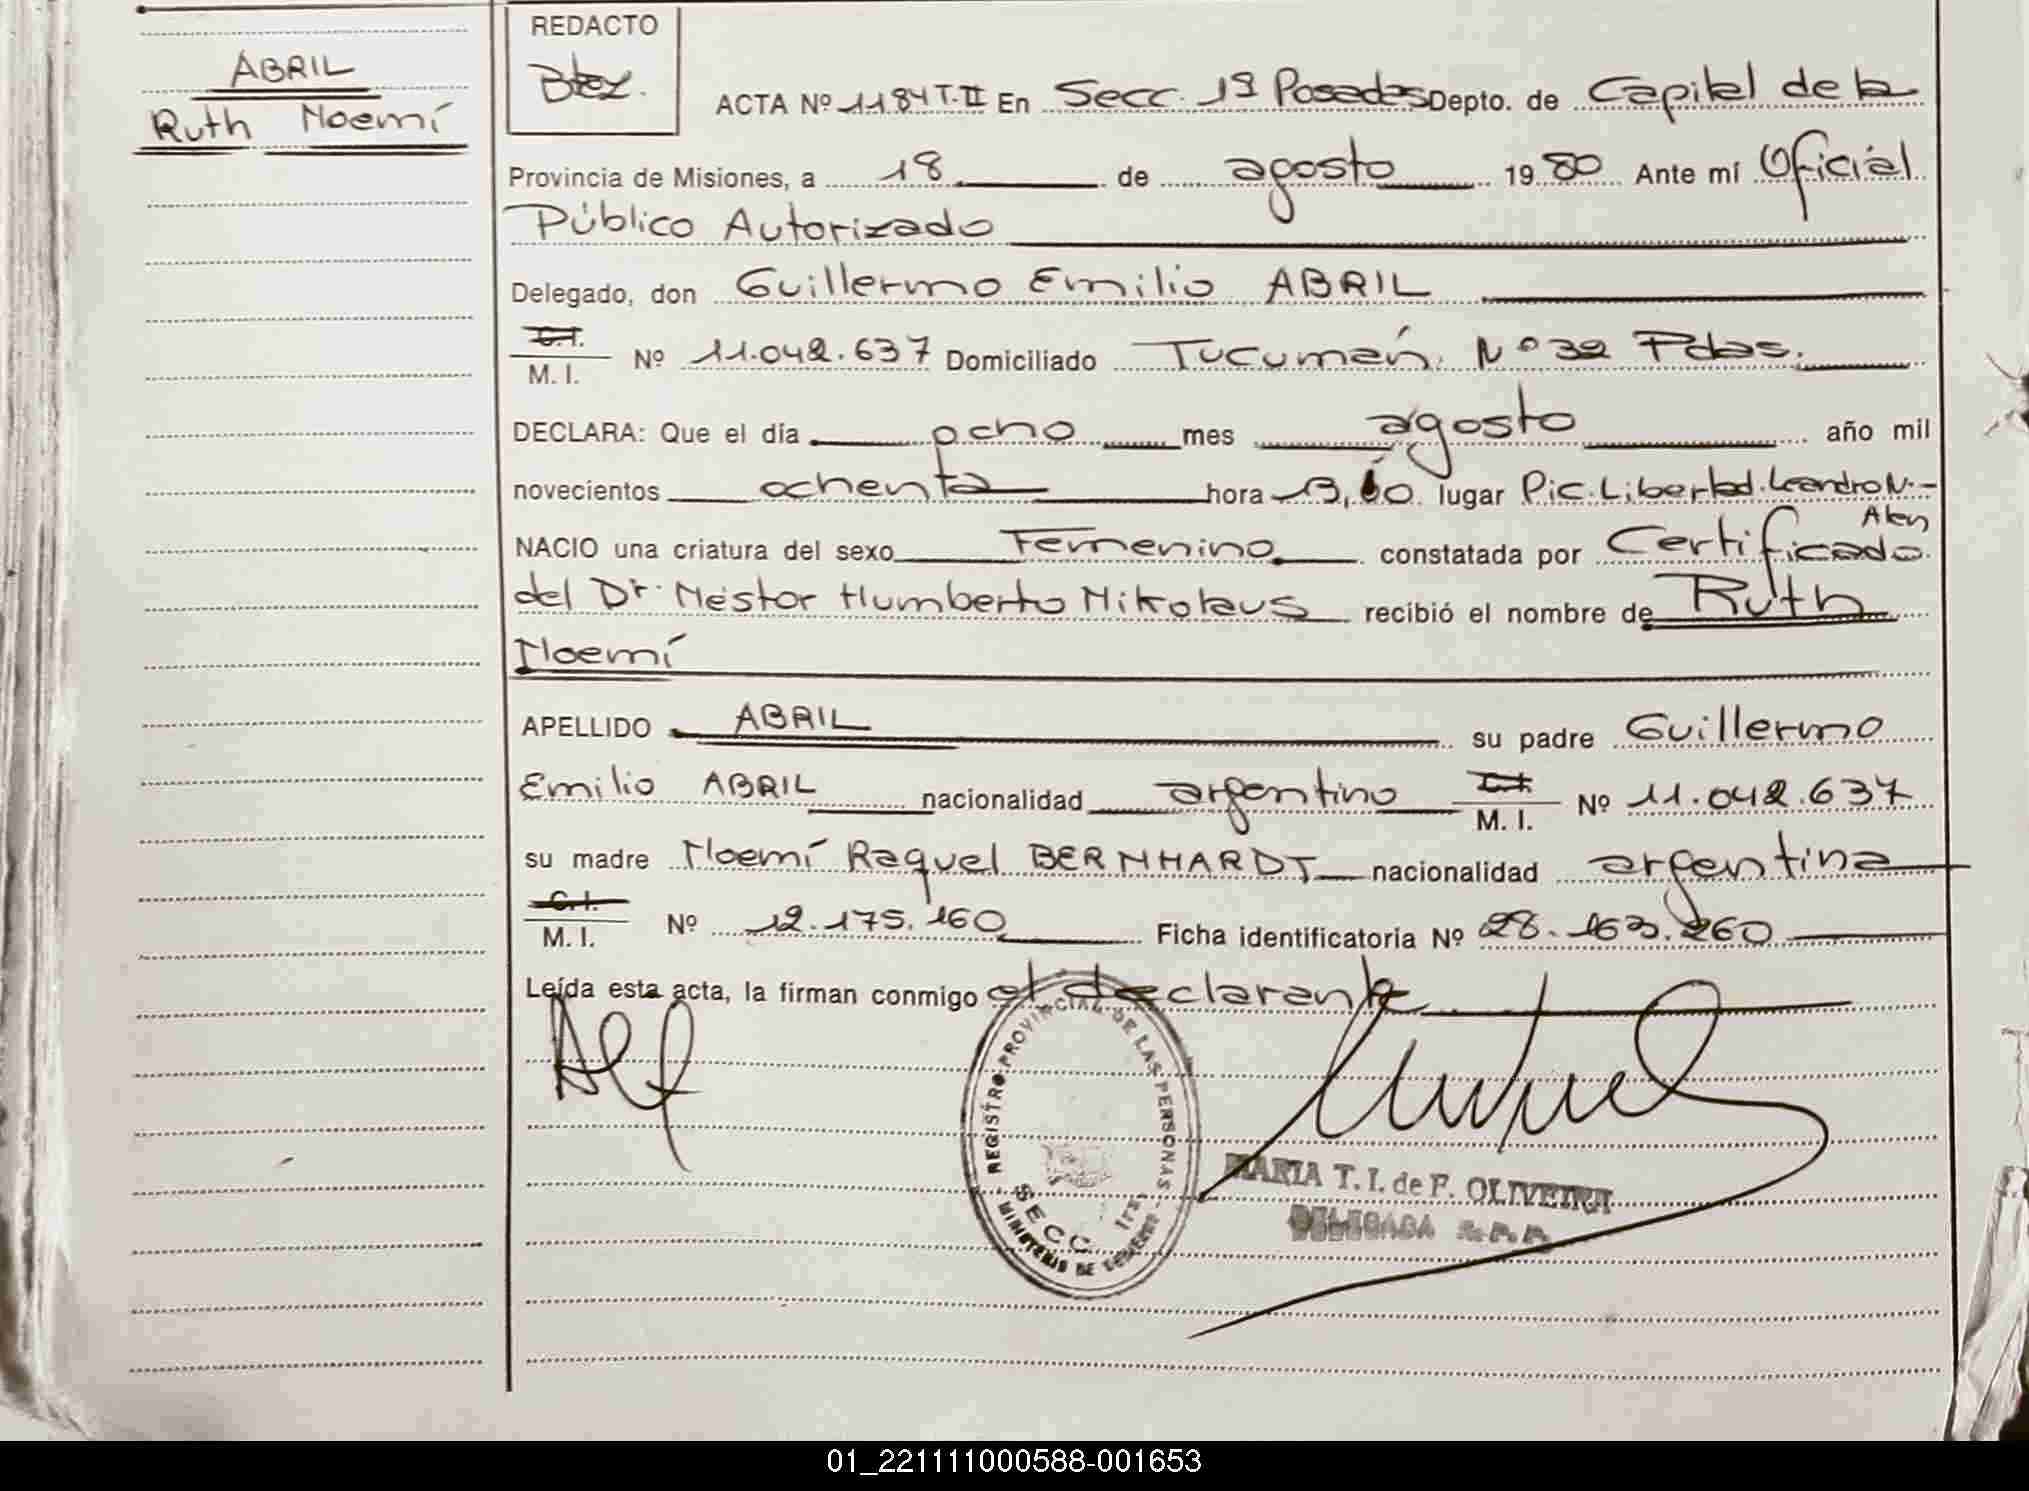 REDACTO
ABRIL
Ruth Noemí
ACTA Nº 1184 T. II En Secc. 1ª Posadas Depto. de Capital de la
Provincia de Misiones, a 18 de agosto 1980 Ante mí Oficial
Público Autorizado
Delegado, don Guillermo Emilio ABRIL
C.I.
M. I. Nº 11.042.637 Domiciliado Tucumán Nº 32 Pdas.
DECLARA: Que el día ocho mes agosto año mil
novecientos ochenta hora lugar Pic. Libertad. Leandro N.
Alem
NACIO una criatura del sexo Femenino constatada por Certificado
del Dr. Néstor Humberto Nikolaus recibió el nombre de Ruth
Noemí
APELLIDO ABRIL su padre Guillermo
Emilio ABRIL nacionalidad argentino C.I. M. I. Nº 11.042.637
su madre Noemí Raquel BERNHARDT nacionalidad argentina
C.I.
M. I. Nº 12.175.160 Ficha identificatoria Nº 28.163.260
Leída esta acta, la firman conmigo el declarante
REGISTRO PROVINCIAL DE LAS PERSONAS
SECC. 1ra
MINISTERIO DE GOBIERNO
MARIA T. I. de F. OLIVEIRA
DELEGADA
01_221111000588-001653